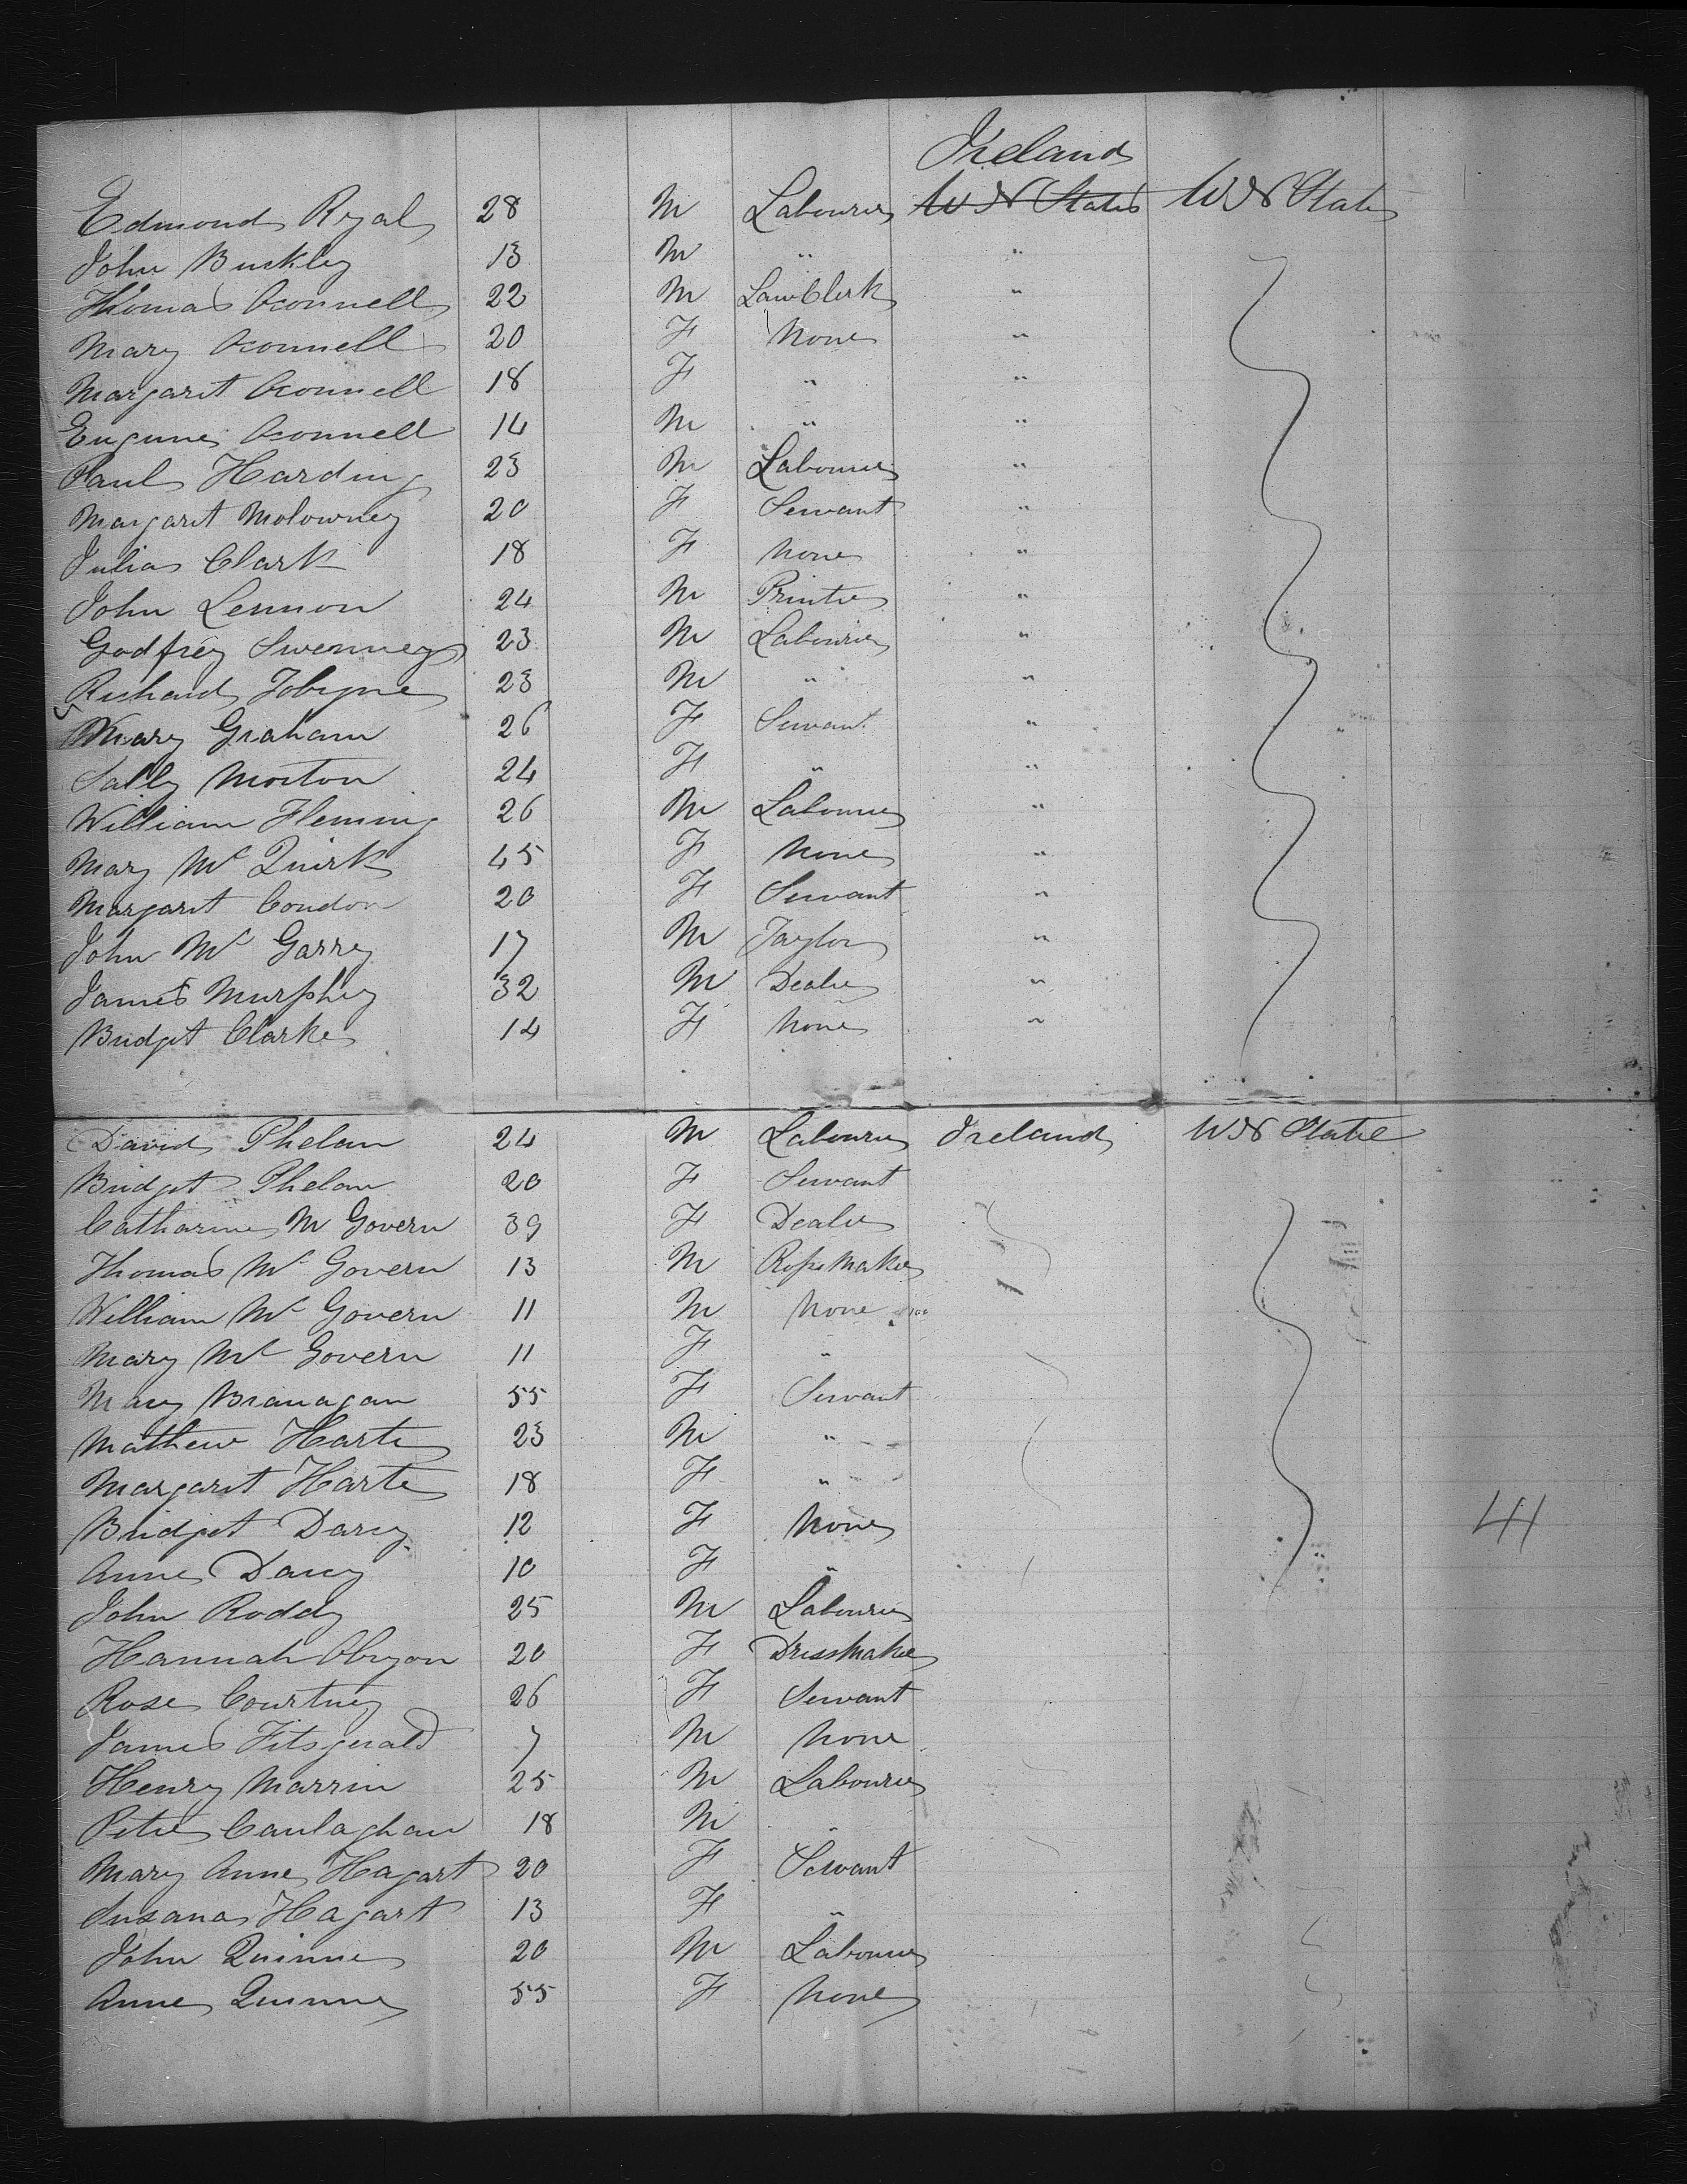 Ireland
Edmond Ryal 28 M Labourer W N States W N States
John Buckley 13 M "  "
Thomas Oconnell 22 M Law Clerk "
Mary Oconnell 20 F None "
Margaret Oconnell 18 F " "
Eugune Oconnell 14 M " "
Paul Harding 23 M Labourer "
Margaret Molowney 20 F Servant "
Julia Clark 18 F None "
John Lennon 24 M Printer "
Godfrey Swenney 23 M Labourer "
Richard Tobyne 23 M " "
Mary Graham 26 F Servant "
Sally Morton 24 F " "
William Fleming 26 M Labourer "
Mary Mc Quirk 45 F None "
Margaret Condon 20 F Servant "
John Mc Garry 17 M Taylor "
James Murphy 32 M Dealer "
Bridget Clarke 14 F None "
David Phelan 24 M Labourer Ireland W N State
Bridget Phelan 20 F Servant
Catharine M Govern 39 F Dealer
Thomas Mc Govern 13 M Rope Maker
William Mc Govern 11 M None
Mary Mc Govern 11 F "
Mary Branagan 55 F Servant
Mathew Harte 23 M "
Margaret Harte 18 F "
Bridget Darcy 12 F None
Anne Darcy 10 F "
41
John Roddy 25 M Labourer
Hannah Obryan 20 F Dressmaker
Rose Courtney 26 F Servant
James Fitsgerald 7 M None
Henry Marrin 25 M Labourer
Peter Caulaghan 18 M "
Mary Anne Hagart 20 F Servant
Susana Hagart 13 F "
John Quinne 20 M Labourer
Anne Quinne 55 F None